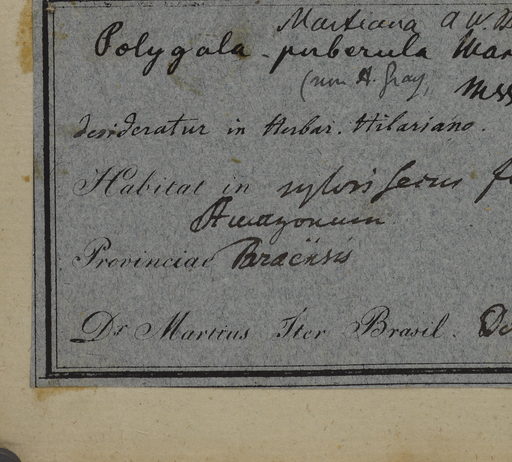 Martiana A.W.B
Polygala puberula Mar
(non A. Gray)
Mss
desideratur in Herbar. Hilariano.
Habitat in sylvis secus fl
Amazonum
Provinciae Paraënsis
Dr Martius Iter Brasil. De